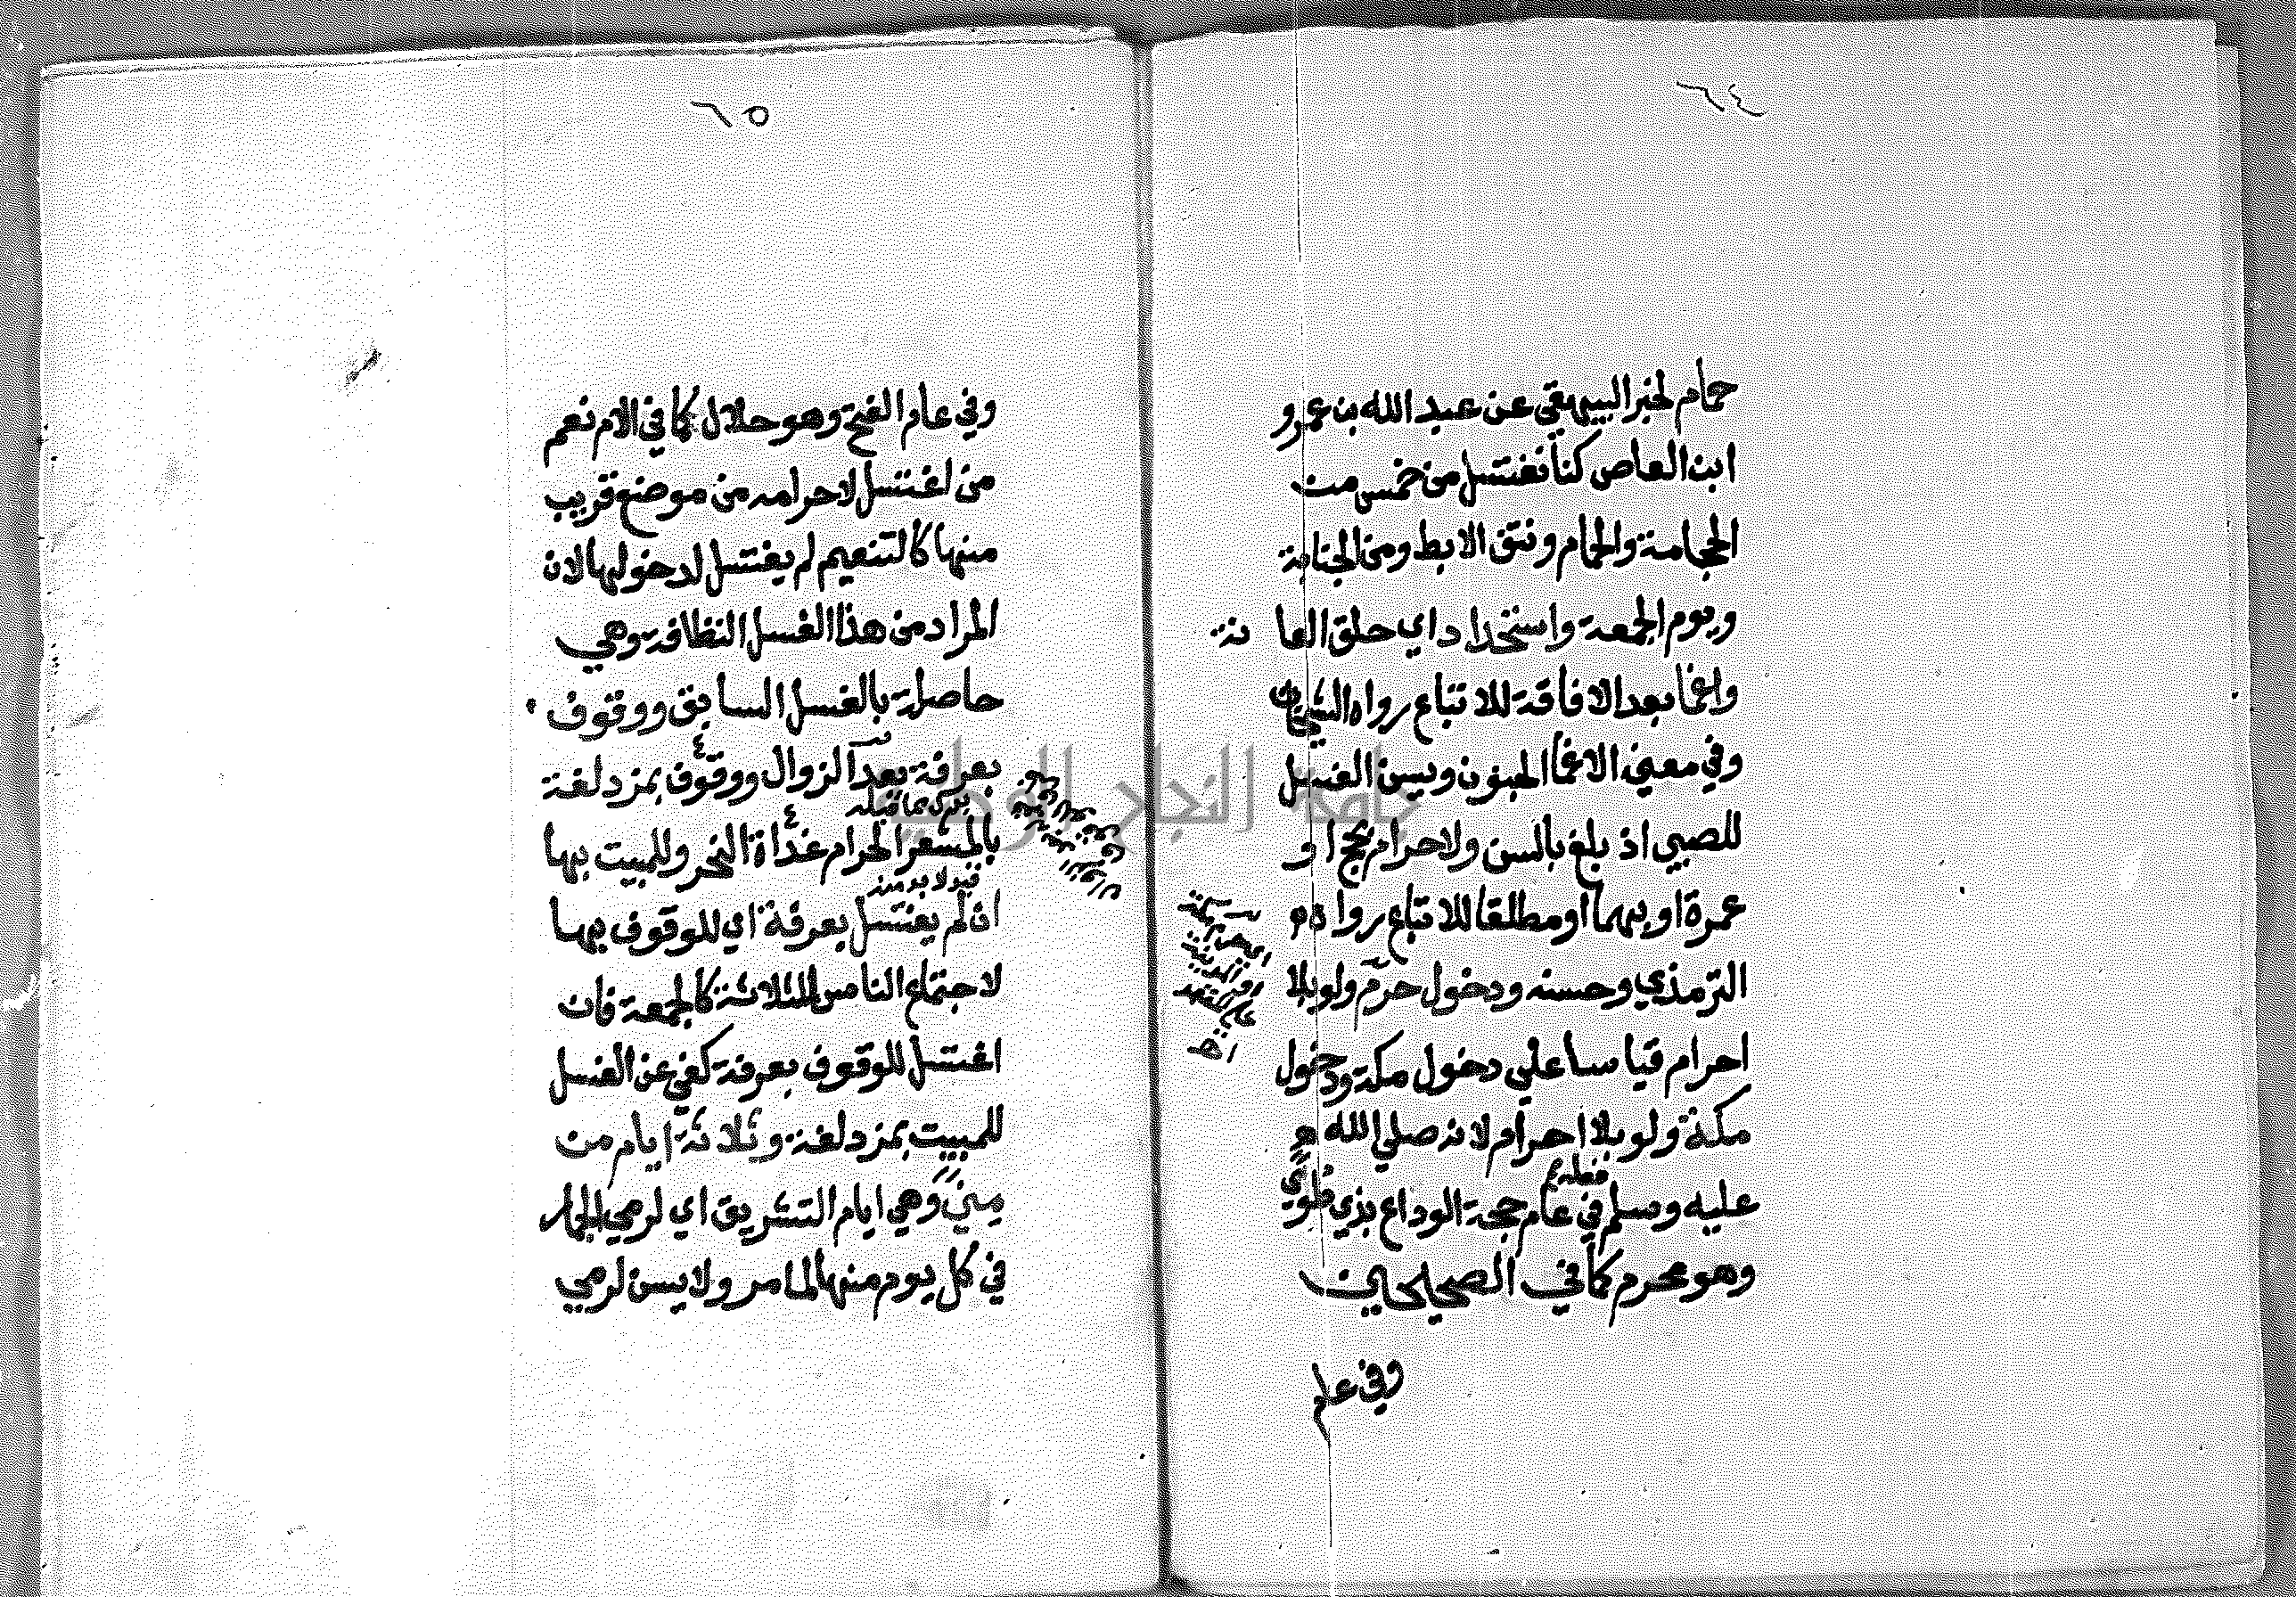 ٦٤
حمام لخبر البيهقي عن عبد الله بن عمرو
ابن العاص كنا نغتسل من خمس من
الحجامة والحمام ونتف الابط ومن الجنابة
ويوم الجمعة واستحداد اي حلق العانة
واغما بعد الافاقة للاتباع رواه الشيخان
وفي معني الاغما الجنون ويسن الغسل
للصبي اذ بلغ بالسن ولاحرام بحج او
عمرة او بهما او مطلقا للاتباع رواه
الترمذي وحسنه ودخول حرم ولو بلا
احرام قياسا علي دخول مكة ودخول
مكة ولو بلا احرام لانه صلي الله
فعله
عليه وسلم في عام حجة الوداع بذي طوي
وهو محرم كما في الصحيحين
وفي عام
٦٥
وفي عام الفتح وهو حلال كما في الام نعم
من اغتسل لاحرامه من موضع قريب
منها كالتنعيم لم يغتسل لدخولها لان
المراد من هذا الغسل النظافة وهي
حاصلة بالغسل السابق ووقوف
بعرفة بعد الزوال ووقوف بمزدلفة
بالمشعر الحرام غداة النحر وللمبيت بها
قيد لا بد منه
ان لم يغتسل بعرفة اي للوقوف بها
لاجتماع الناس للثلاثة كالجمعة فان
اغتسل للوقوف بعرفة كفي عن الغسل
للمبيت بمزدلفة وثلاثة ايام من
مني وهي ايام التشريق اي لرمي الجمار
في كل يوم منها لما مر ولا يسن لرمي
جامعة النجاح الوطنية